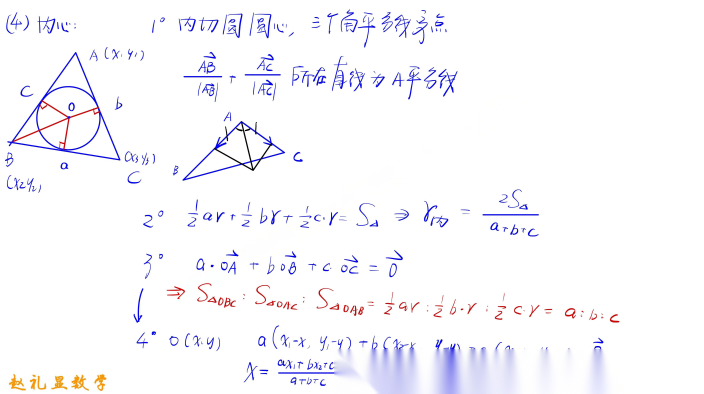 (4) 内心: 1° 内切圆圆心, 三个角平分线交点
A (x₁y₁)
AB/|AB| + AC/|AC| 所在直线为A平分线
C
b
O
A
B
a
(x₃y₃)
C
B
C
(x₂y₂)
2° ½ar+½br+½c·r=S△ ⇒ r内 = 2S△/(a+b+c)
3° a·OA + b OB + c·OC = 0
⇒ S△OBC : S△OAC : S△OAB = ½ar : ½b·r : ½c·r = a:b:c
4° O(x,y) a(x₁-x, y₁-y) + b(x₂-x
X = ax₁+bx₂+c / a+b+c
赵礼显数学